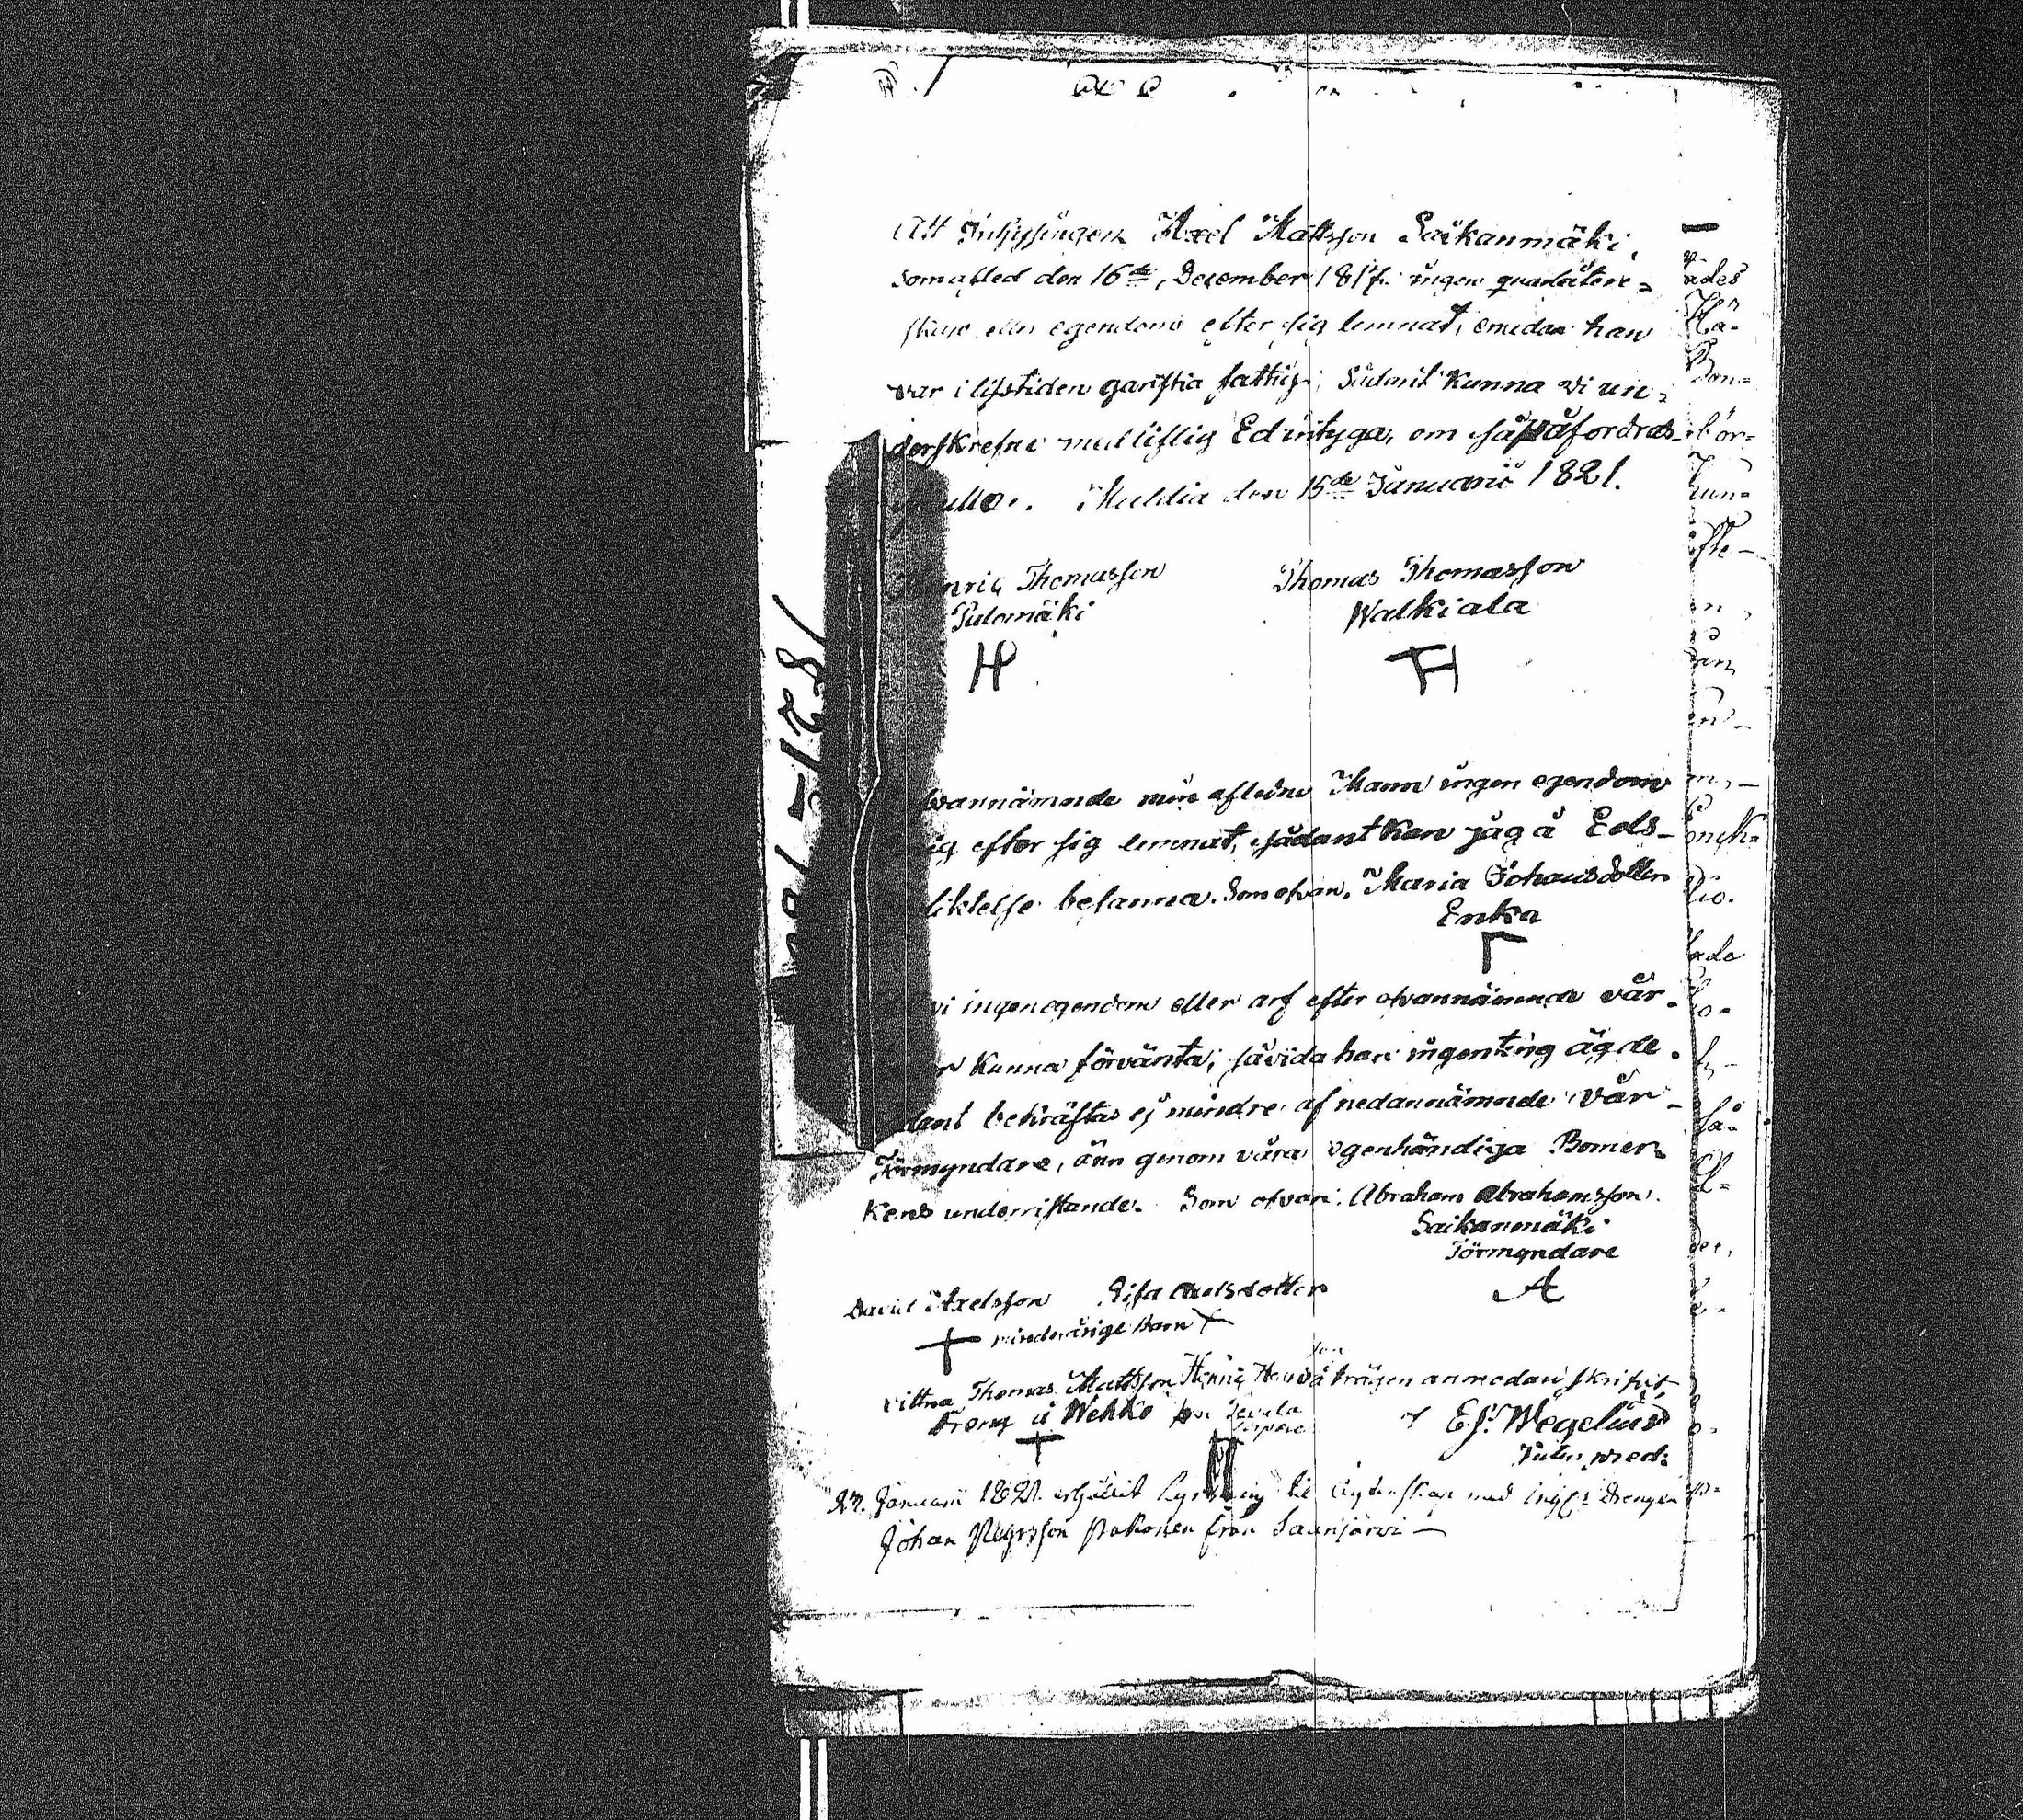 Att Inhysingen Axel Mattsson Saikanmäki,
som afled den 16de December 181 ingen quarlåten=
skap eller egendom efter sig lemnat, emedan han
var i lifstiden ganska fattig; Sådant kunna vi un=
derskrefne med liflig Ed intyga, om så påfordras
skulle. Muldia den 15de Januarii 1821.
Henric Thomasson
Thomas Thomasson
Pulomäki
Walkiala
H
TH
ofvannämnde min aflidne Mann ingen egendom
sig efter sig lemnat, sådant kan jag å Eds-
pliktelse besanna. Som ofvan. Maria Johansdotter
Enka
vi ingen egendom eller arf efter ofvannämnde vår
kunna förvänta; såvida han ingenting ägde.
Sådant bekräftas ej mindre af nedannämnde vår
Förmyndare, än genom våra egenhändiga Bomer=
kens underristande. Som ofvan. Abraham Abrahamsson
Saikanmäki
Förmyndare
A
David Axelsson Lisa Axelsdotter
minderårige Barn
vittna Thomas Mattsson Henric son på trägen anmodan skrifvit
Dreng å Wehko
af E.J. Wegelius
27. Januarii 1821. erhållit Lysning til Ägtenskap med drengen
Johan Pakonen från Saarijärvi —
1821